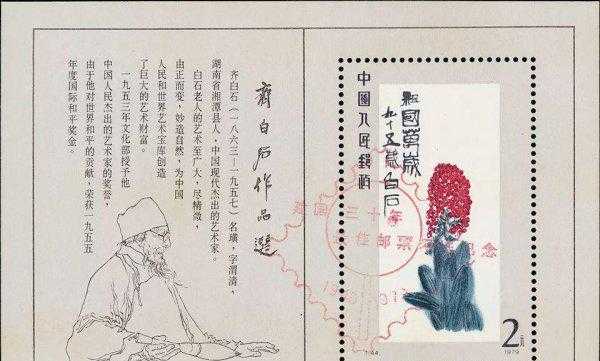 祖國萬歲
九十五歲白石
中國人民郵政
2元
1979
建国三十年
最佳邮票
纪念
齊白石作品選
齐白石(一八六三—一九五七)名璜,字渭清,
湖南省湘潭人,中国现代杰出的艺术家。
白石老人的艺术至广大,尽精微,
由正而变,妙造自然,为中国
人民和世界艺术宝库创造
了巨大的艺术财富。
一九五三年文化部授予他
中国人民杰出的艺术家的奖誉,
由于他对世界和平的贡献,荣获一九五五
年度国际和平奖金。